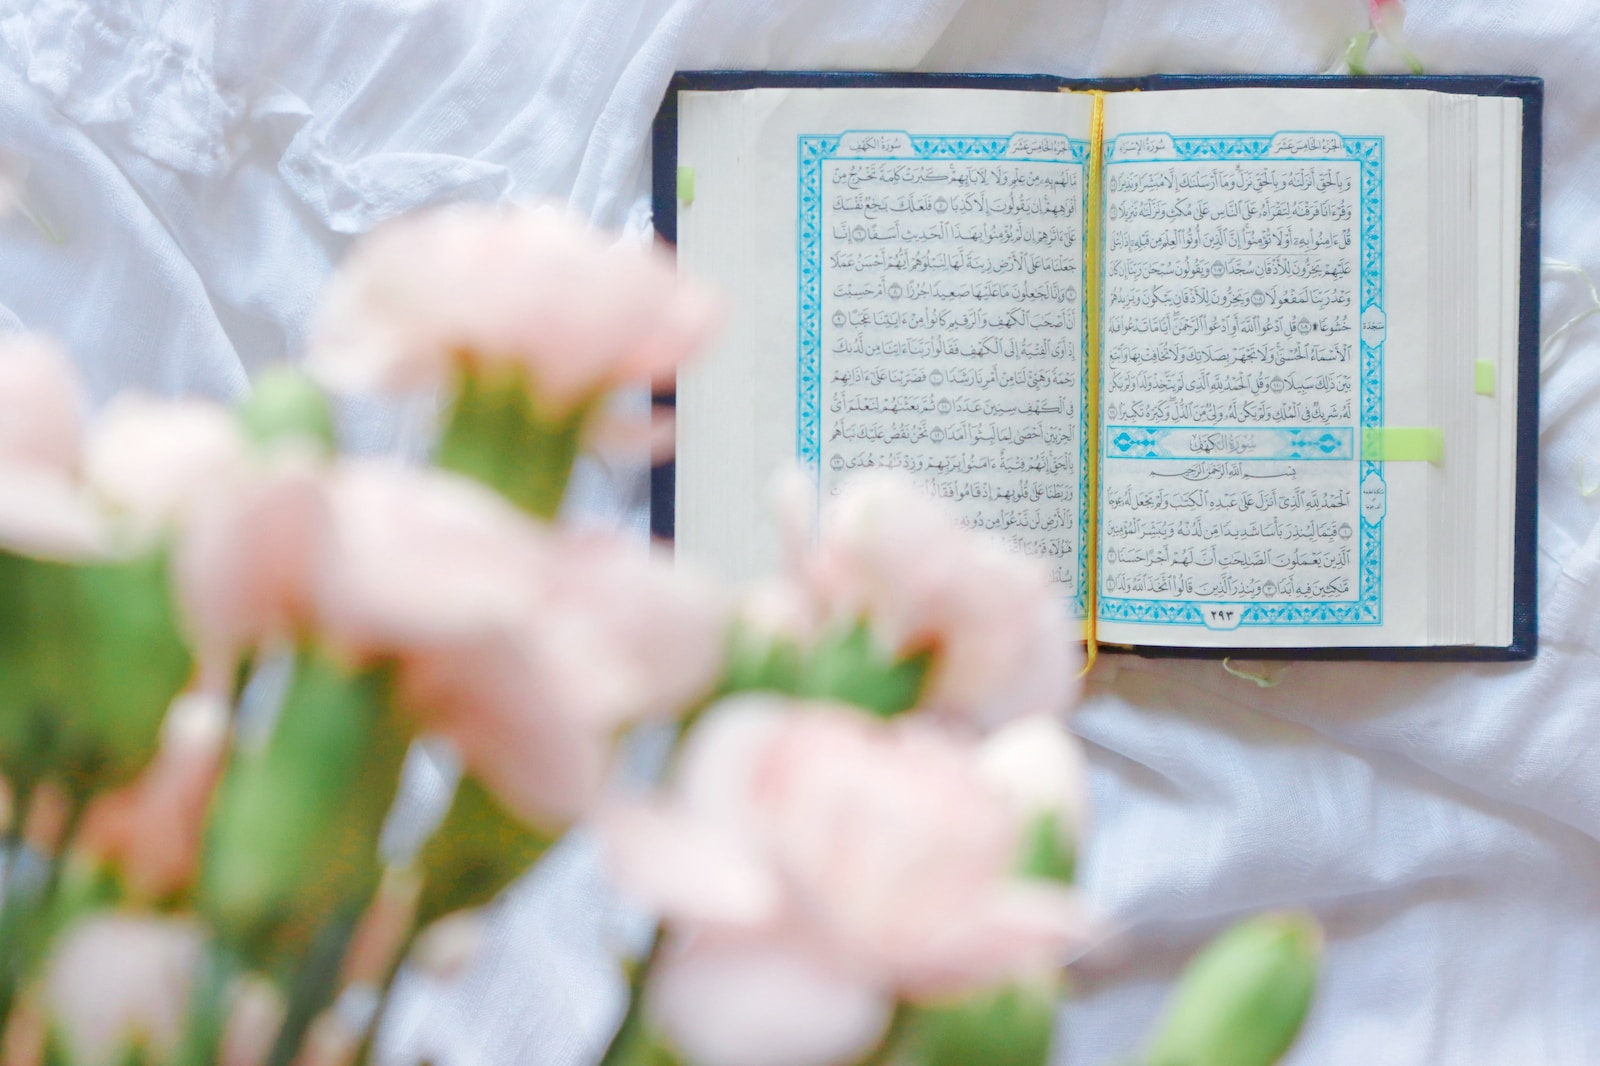 سُورَةُ الإِسْرَاءِ
الجُزْءُ الخَامِسَ عَشَرَ
وَبِالْحَقِّ أَنزَلْنَاهُ وَبِالْحَقِّ نَزَلَ وَمَا أَرْسَلْنَاكَ إِلَّا مُبَشِّرًا وَنَذِيرًا
وَقُرْءَانًا فَرَقْنَاهُ لِتَقْرَأَهُ عَلَى النَّاسِ عَلَى مُكْثٍ وَنَزَّلْنَاهُ تَنزِيلًا
قُلْ ءَامِنُوا بِهِ أَوْ لَا تُؤْمِنُوا إِنَّ الَّذِينَ أُوتُوا الْعِلْمَ مِن قَبْلِهِ إِذَا يُتْلَى
عَلَيْهِمْ يَخِرُّونَ لِلْأَذْقَانِ سُجَّدًا ١٠٧ وَيَقُولُونَ سُبْحَانَ رَبِّنَا إِن كَانَ
وَعْدُ رَبِّنَا لَمَفْعُولًا ١٠٨ وَيَخِرُّونَ لِلْأَذْقَانِ يَبْكُونَ وَيَزِيدُهُمْ
خُشُوعًا ۩ ١٠٩ قُلِ ادْعُوا اللَّهَ أَوِ ادْعُوا الرَّحْمَنَ أَيًّا مَّا تَدْعُوا فَلَهُ
سَجْدَة
الْأَسْمَاءُ الْحُسْنَى وَلَا تَجْهَرْ بِصَلَاتِكَ وَلَا تُخَافِتْ بِهَا وَابْتَغِ
بَيْنَ ذَلِكَ سَبِيلًا ١١٠ وَقُلِ الْحَمْدُ لِلَّهِ الَّذِي لَمْ يَتَّخِذْ وَلَدًا وَلَمْ يَكُن
لَّهُ شَرِيكٌ فِي الْمُلْكِ وَلَمْ يَكُن لَّهُ وَلِيٌّ مِّنَ الذُّلِّ وَكَبِّرْهُ تَكْبِيرًا ١١١
سُورَةُ الكَهْفِ
بِسْمِ اللَّهِ الرَّحْمَنِ الرَّحِيمِ
الْحَمْدُ لِلَّهِ الَّذِي أَنزَلَ عَلَى عَبْدِهِ الْكِتَابَ وَلَمْ يَجْعَل لَّهُ عِوَجَا
١ قَيِّمًا لِّيُنذِرَ بَأْسًا شَدِيدًا مِّن لَّدُنْهُ وَيُبَشِّرَ الْمُؤْمِنِينَ
الَّذِينَ يَعْمَلُونَ الصَّالِحَاتِ أَنَّ لَهُمْ أَجْرًا حَسَنًا ٢
مَّاكِثِينَ فِيهِ أَبَدًا ٣ وَيُنذِرَ الَّذِينَ قَالُوا اتَّخَذَ اللَّهُ وَلَدًا ٤
٢٩٣
سُورَةُ الكَهْفِ
الجُزْءُ الخَامِسَ عَشَرَ
مَّا لَهُم بِهِ مِنْ عِلْمٍ وَلَا لِآبَائِهِمْ كَبُرَتْ كَلِمَةً تَخْرُجُ مِنْ
أَفْوَاهِهِمْ إِن يَقُولُونَ إِلَّا كَذِبًا ٥ فَلَعَلَّكَ بَاخِعٌ نَّفْسَكَ
عَلَى ءَاثَارِهِمْ إِن لَّمْ يُؤْمِنُوا بِهَذَا الْحَدِيثِ أَسَفًا ٦ إِنَّا
جَعَلْنَا مَا عَلَى الْأَرْضِ زِينَةً لَّهَا لِنَبْلُوَهُمْ أَيُّهُمْ أَحْسَنُ عَمَلًا
٧ وَإِنَّا لَجَاعِلُونَ مَا عَلَيْهَا صَعِيدًا جُرُزًا ٨ أَمْ حَسِبْتَ
أَنَّ أَصْحَابَ الْكَهْفِ وَالرَّقِيمِ كَانُوا مِنْ ءَايَاتِنَا عَجَبًا ٩
إِذْ أَوَى الْفِتْيَةُ إِلَى الْكَهْفِ فَقَالُوا رَبَّنَا ءَاتِنَا مِن لَّدُنكَ
رَحْمَةً وَهَيِّئْ لَنَا مِنْ أَمْرِنَا رَشَدًا ١٠ فَضَرَبْنَا عَلَى ءَاذَانِهِمْ
فِي الْكَهْفِ سِنِينَ عَدَدًا ١١ ثُمَّ بَعَثْنَاهُمْ لِنَعْلَمَ أَيُّ
الْحِزْبَيْنِ أَحْصَى لِمَا لَبِثُوا أَمَدًا ١٢ نَّحْنُ نَقُصُّ عَلَيْكَ نَبَأَهُم
بِالْحَقِّ إِنَّهُمْ فِتْيَةٌ ءَامَنُوا بِرَبِّهِمْ وَزِدْنَاهُمْ هُدًى ١٣
وَرَبَطْنَا عَلَى قُلُوبِهِمْ إِذْ قَامُوا فَقَالُوا
وَالْأَرْضِ لَن نَّدْعُوَا مِن دُونِهِ
هَؤُلَاءِ قَوْمُنَا